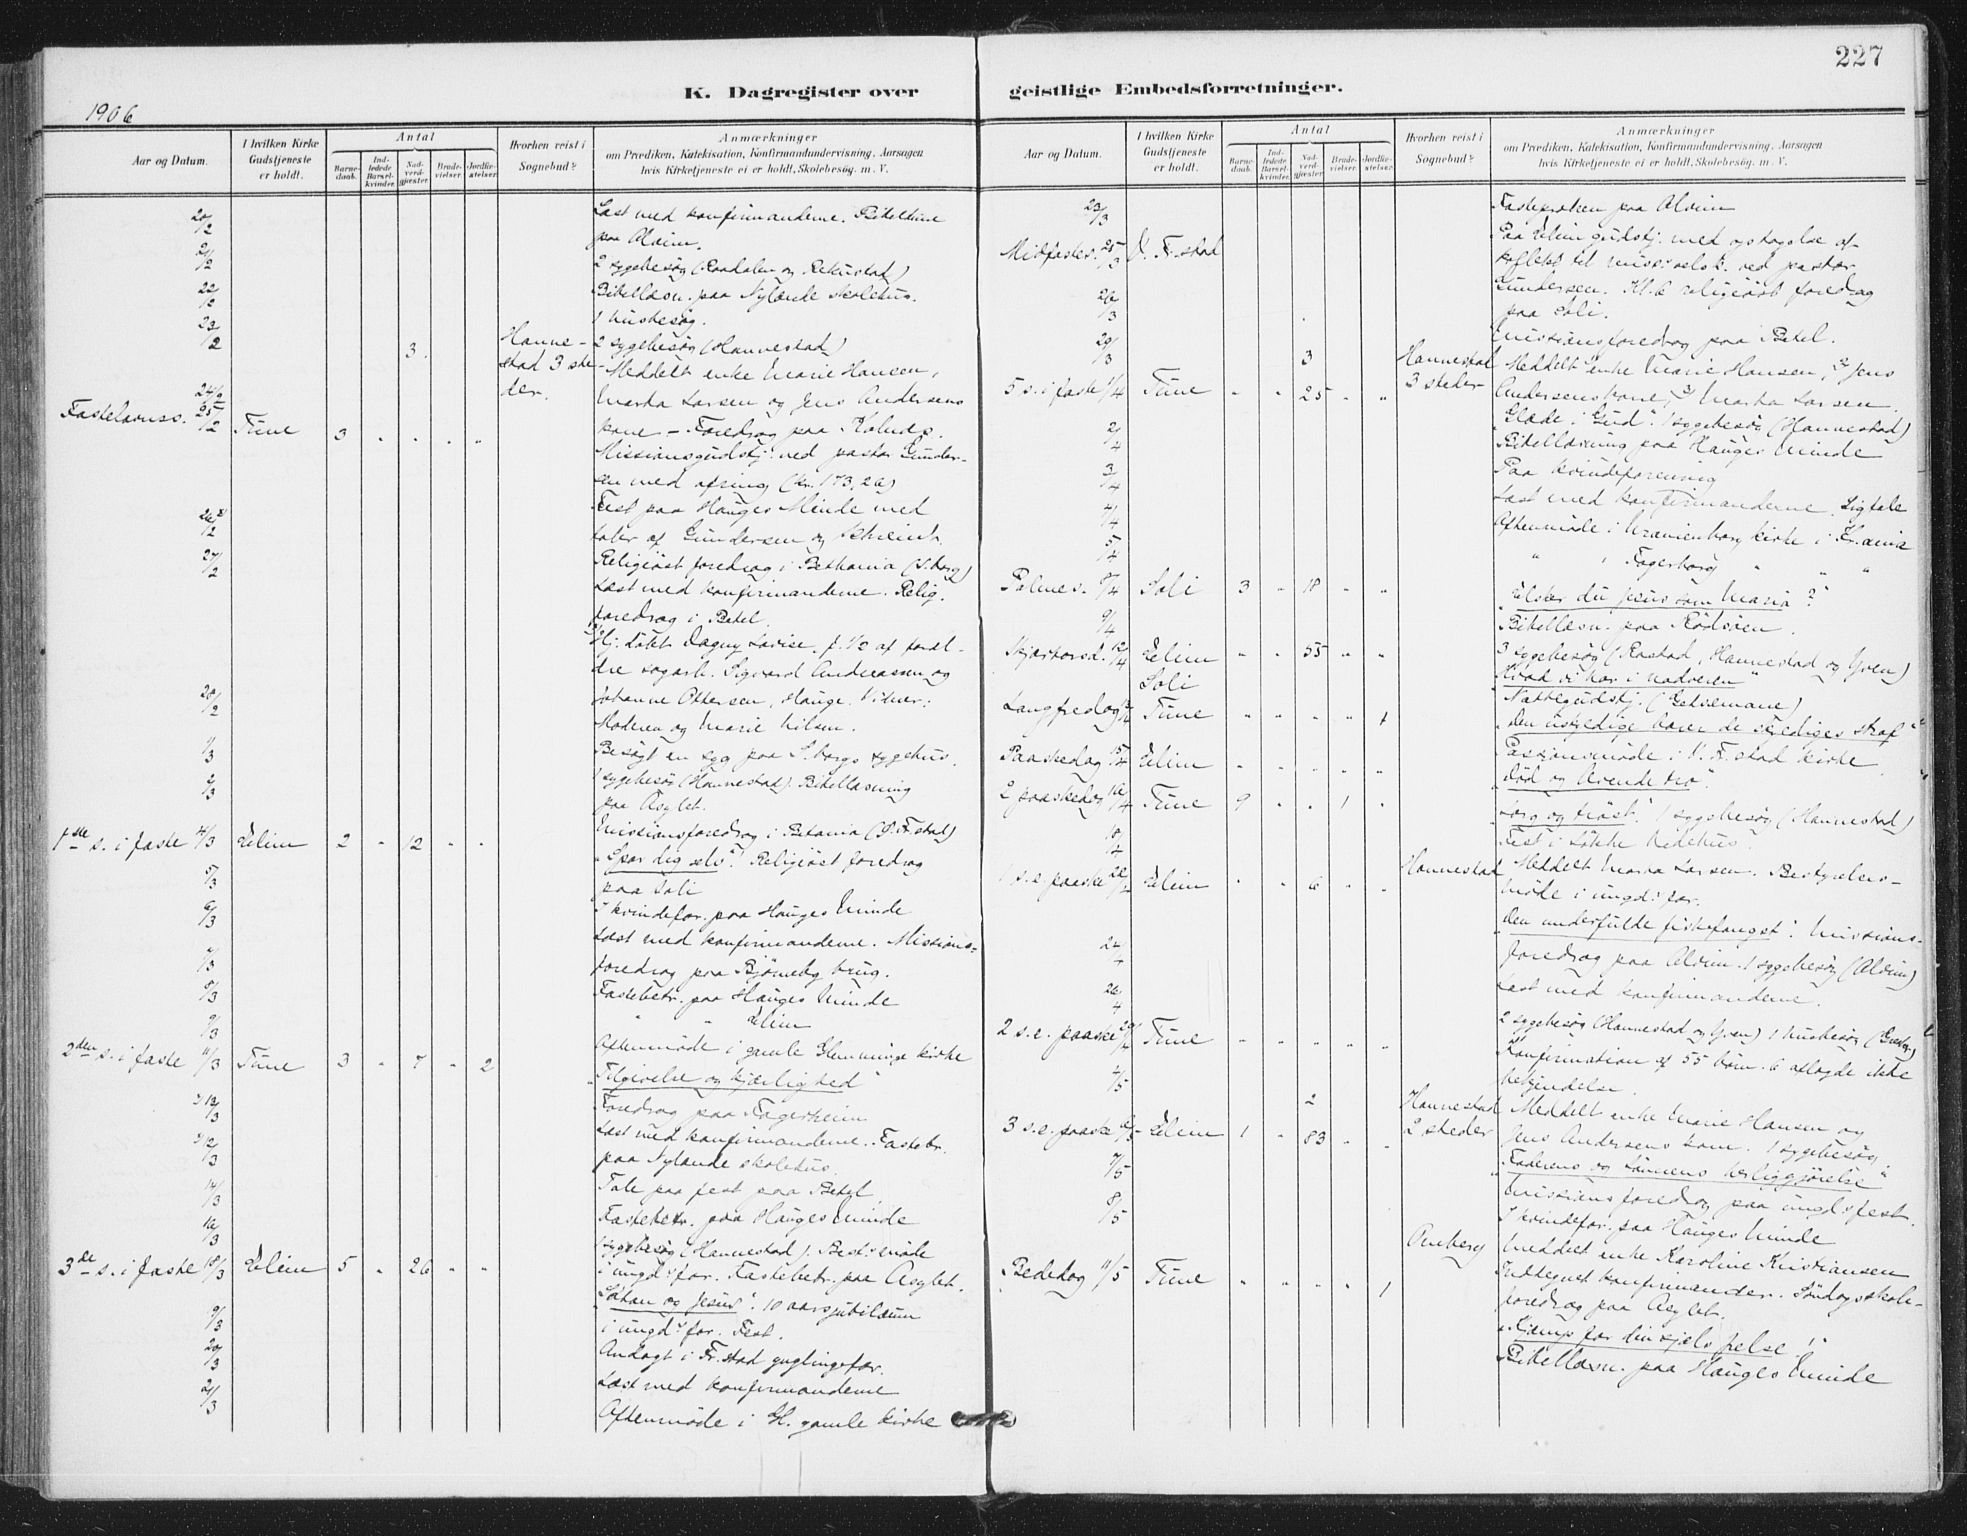 227
K. Dagregister over geistlige Embedsforretninger.
1906
Aar og Datum.
I hvilken Kirke Gudstjeneste er holdt.
Antal
Barnedaab.
Indledede Barselkvinder.
Nadverdgjæster
Brudevielser.
Jordfæstelser.
Hvorhen reist i Sognebud?
Anmærkninger
om Prædiken, Katekisation, Konfirmandundervisning, Aarsagen
hvis Kirketjeneste ei er holdt, Skolebesøg. m. V.
20/2 Læst med konfirmanderne. Bibeltime
paa Alvim.
21/2 2 sygebesøg (Raadalen og Rekustad)
22/2 Bibellæsn. paa Nylænde skolehus.
1 husbesøg.
23/2 3. Hanne- 2 sygebesøg (Hannestad)
stad 3 ste- Meddelt enke Marie Hansen,
24/2 der. Marta Larsen og Jens Andersens
Fastelavnss. 25/2 Tune 3 " " " " kone – Foredrag paa Kalnes.
Missionsgudstj. ved pastor Gunder-
sen med ofring (kr. 173,26)
26/2 Fest paa Hauges Minde med
taler af Gundersen og
27/2 Religiøst foredrag i Bethania (S.borg)
Læst med konfirmanderne. Relig.
foredrag i Betel.
Hj. døbt Dagny Lovise, f. 1/2 af foræl-
dre sagarb. Sigvard Andreassen og
28/2 Johanne Ottersen, Hauge. Vitner:
Moderen og Marie Nilsen.
1/3 Besøgt en syg paa S.borgs sygehus.
2/3 1 sygebesøg (Hannestad). Bibellæsning
paa Asylet.
1ste s. i faste 4/3 Elim 2 " 12 " " Missionsforedrag i Betania (V. F.stad)
"Spar dig selv". Religiøst foredrag
5/3 paa Soli
6/3 I kvindefor. paa Hauges Minde
Læst med konfirmanderne. Missions-
7/3 foredrag paa Bjørneby brug.
8/3 Fastebetr. paa Hauges Minde
9/3 " " Elim
2den s. i faste 11/3 Tune 3 " 7 " 2 Aftenmøde i gamle Glemminge kirke
"Tilgivelse og kjærlighed"
12/3 Foredrag paa Fagerheim
13/3 Læst med konfirmanderne. Fastebr.
paa Nylænde skolehus.
14/3 Tale paa fest paa Betel
16/3 Fastebetr. paa Hauges Minde
3de s. i faste 18/3 Elim 5 " 26 " " 1 sygebesøg (Hannestad). Best.s møde
i ungd.s for. Fastebetr. paa Asylet.
19/3 "Satan og Jesus". 10 aarsjubilæum
i ungd.s for. Fest.
20/3 Andagt i Fr.stad ynglingsfor.
21/3 Læst med konfirmanderne
Aftenmøde i Gl. gamle kirke
Aar og Datum.
I hvilken Kirke Gudstjeneste er holdt.
Antal
Barnedaab.
Indledede Barselkvinder.
Nadverdgjæster
Brudevielser.
Jordfæstelser.
Hvorhen reist i Sognebud?
Anmærkninger
om Prædiken, Katekisation, Konfirmandundervisning, Aarsagen
hvis Kirketjeneste ei er holdt, Skolebesøg. m. V.
23/3 Fastepræken paa Alvim
Midfastes. 25/3 V. F.stad Paa Elim gudstj. med optagelse af
kollekt til miss.s selsk. ved pastor
26/3 Gundersen. Kl. 6 religiøst foredrag
paa Soli.
29/3 Missionsforedrag paa Betel.
3 Hannestad Meddelt enke Marie Hansen, Jens
5 s. i faste 1/4 Tune " " 25 " " 3 steder Andersens kone, Marta Larsen.
2/4 "Glæde i Gud". 1 sygebesøg (Hannestad)
Bibellæsning paa Hauges Minde
3/4 Paa kvindeforening
4/4 Læst med konfirmanderne. Ligtale
5/4 Aftenmøde i Uranienborg kirke i Kr.ania
" i Fagerborg " " "
Palmes. 8/4 Soli 3 " 18 " " "Elsker du Jesus som Maria?"
9/4 Bibellæsn. paa Rødsøen.
Skjærtorsd. 12/4 Elim " " 55 " " 3 sygebesøg (Rostad, Hannestad og Yven)
Soli "Hvad vi har i nadveren"
Langfredag 13/4 Tune " " " " 1 Nattegudstj. (Getsemane)
"Den uskyldige bærer de skyldiges straf"
Paaskedag 15/4 Elim " " " " " Passionsmøde i V. F.stad kirke
"Død og levende tro".
2 paaskedag 16/4 Tune 9 " " 1 " "Sorg og trøst". 1 sygebesøg (Hannestad)
18/4 Fest i Løkke bedehus.
1 s.e. paaske 22/4 Elim " " 6 " " Hannestad Meddelt Marta Larsen. Bestyrelses-
møde i ungd.s for.
24/4 "Den underfulde fiskefangst". Missions-
foredrag paa Alvim. 1 sygebesøg (Alvim)
26/4 Læst med konfirmanderne.
2 s.e. paaske 29/4 Tune " " " " " 2 sygebesøg (Hannestad og Yven) 1 husbesøg
4/5 Konfirmation af 55 børn. 6 aflagde ikke
bekjendelse
2 Hannestad Meddelt enke Marie Hansen og
3 s.e. paaske 6/5 Elim 1 " 83 " " 2 steder Jens Andersens kone. 1 sygebesøg
7/5 "Faderens og Sønnens herliggjørelse"
8/5 Missionsforedrag paa ungd.s fest.
I kvindefor. paa Hauges Minde
Omberg Meddelt enke Karoline Kristiansen
Bededag 11/5 Tune " " " " 1 Indtegnet konfirmander. Søndagsskole-
foredrag paa Asylet.
"Kjæmp for din sjæls frelse!"
Bibellæsn. paa Hauges Minde